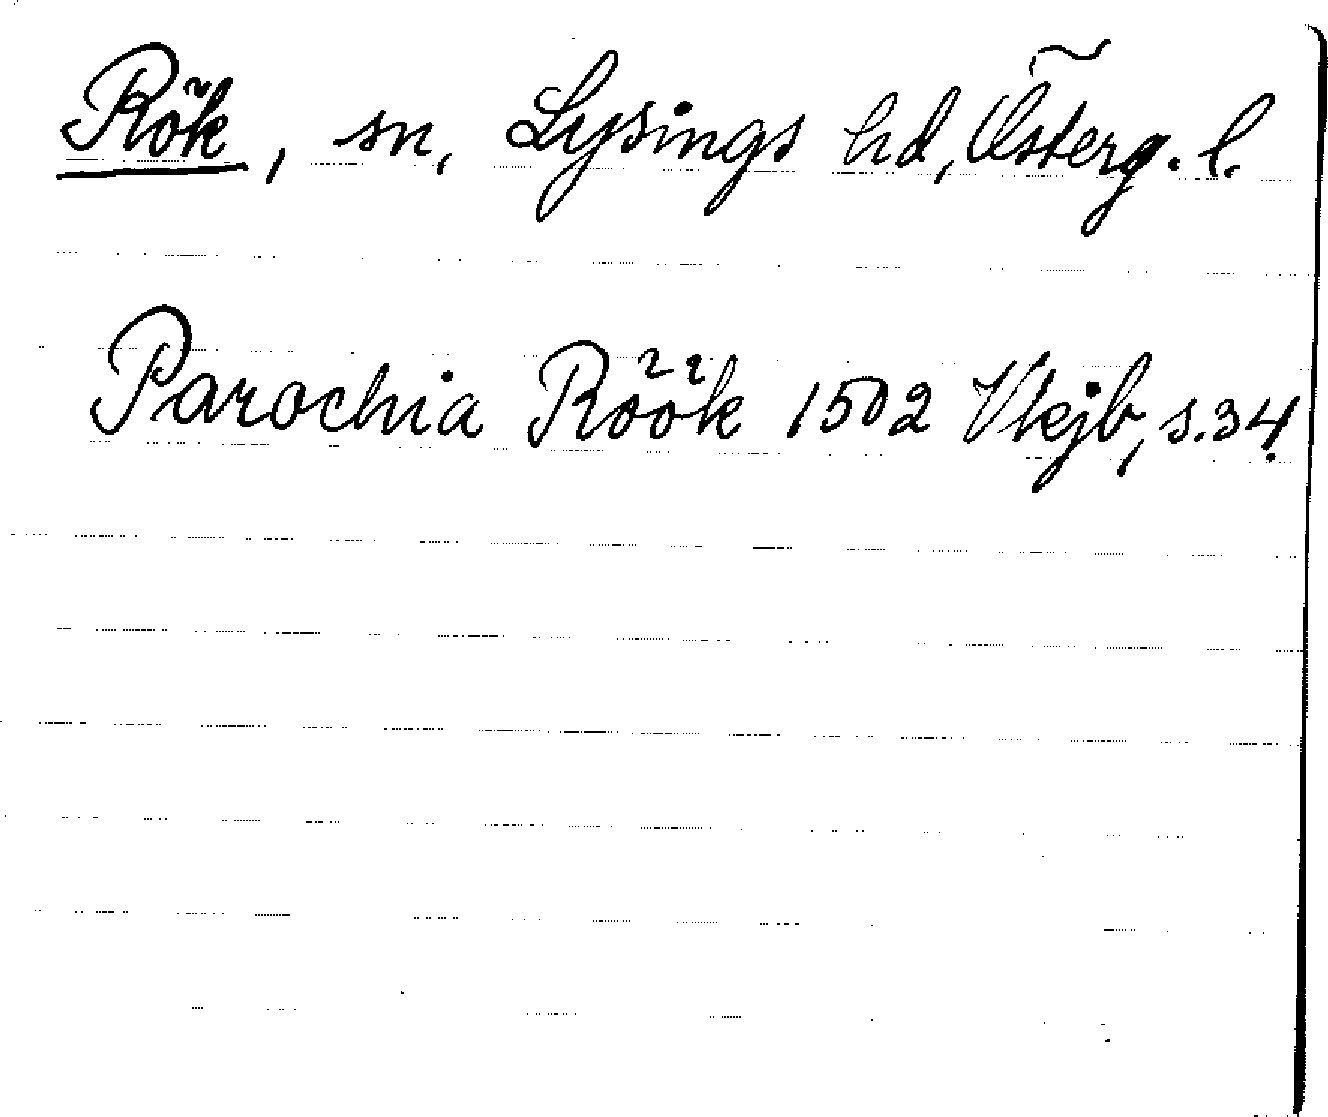 Rök, sn, Lysings hd, Österg. l.
Parochia Röök 1502 Vkjb, s. 34.